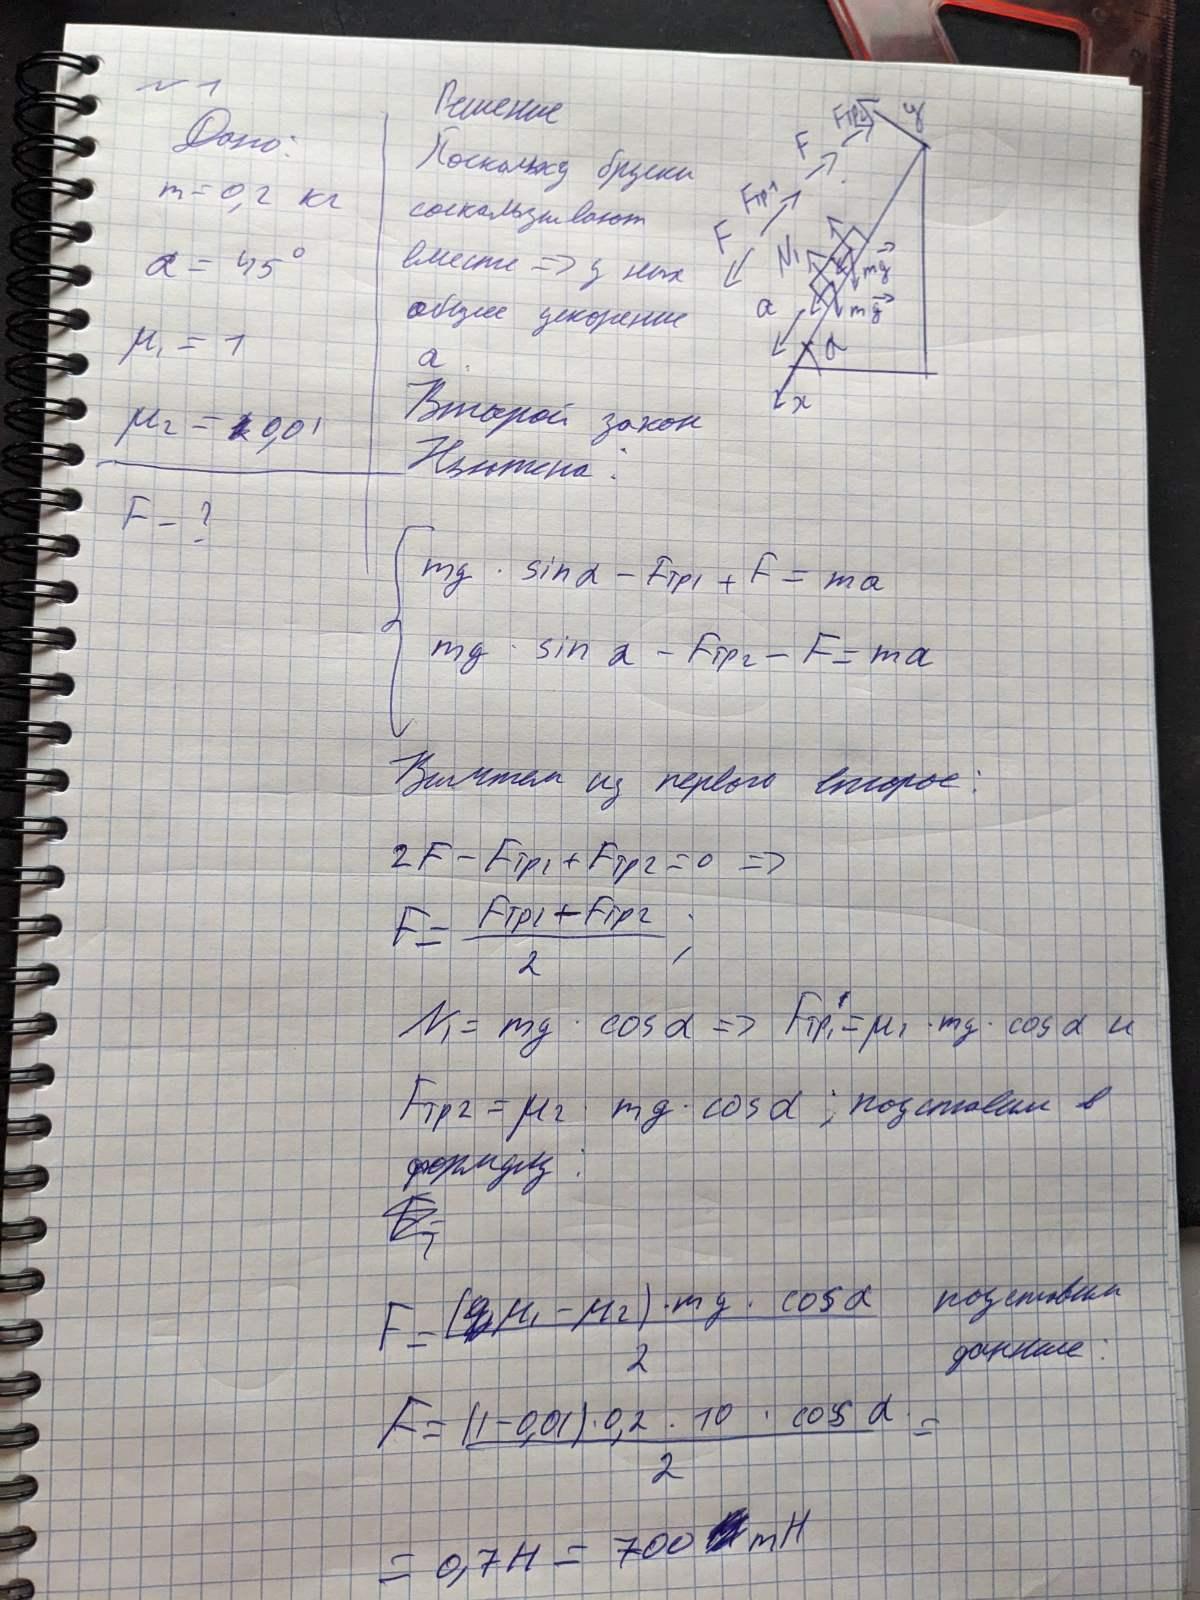 № 1
Дано:
m = 0,2 кг
α = 45°
μ₁ = 1
μ₂ = 0,01
F - ?
Решение
Поскольку бруски
соскальзывают
вместе => у них
общее ускорение
a.
Второй закон
Ньютона:
y
Fтр2
F
Fтр1
F
N₁
mg
mg
a
α
x
mg · sinα - Fтр1 + F = ma
mg · sin α - Fтр2 - F = ma
Вычтем из первого второе:
2F - Fтр1 + Fтр2 = 0 =>
F = (Fтр1 - Fтр2)/2 ;
N₁ = mg · cosα => Fтр1 = μ₁ · mg · cosα и
Fтр2 = μ₂ · mg · cosα ; подставим в
формулу:
F = (μ₁ - μ₂) · mg · cosα / 2 подставим
данные:
F = (1 - 0,01) · 0,2 · 10 · cos α / 2 =
= 0,7 Н = 700 мН